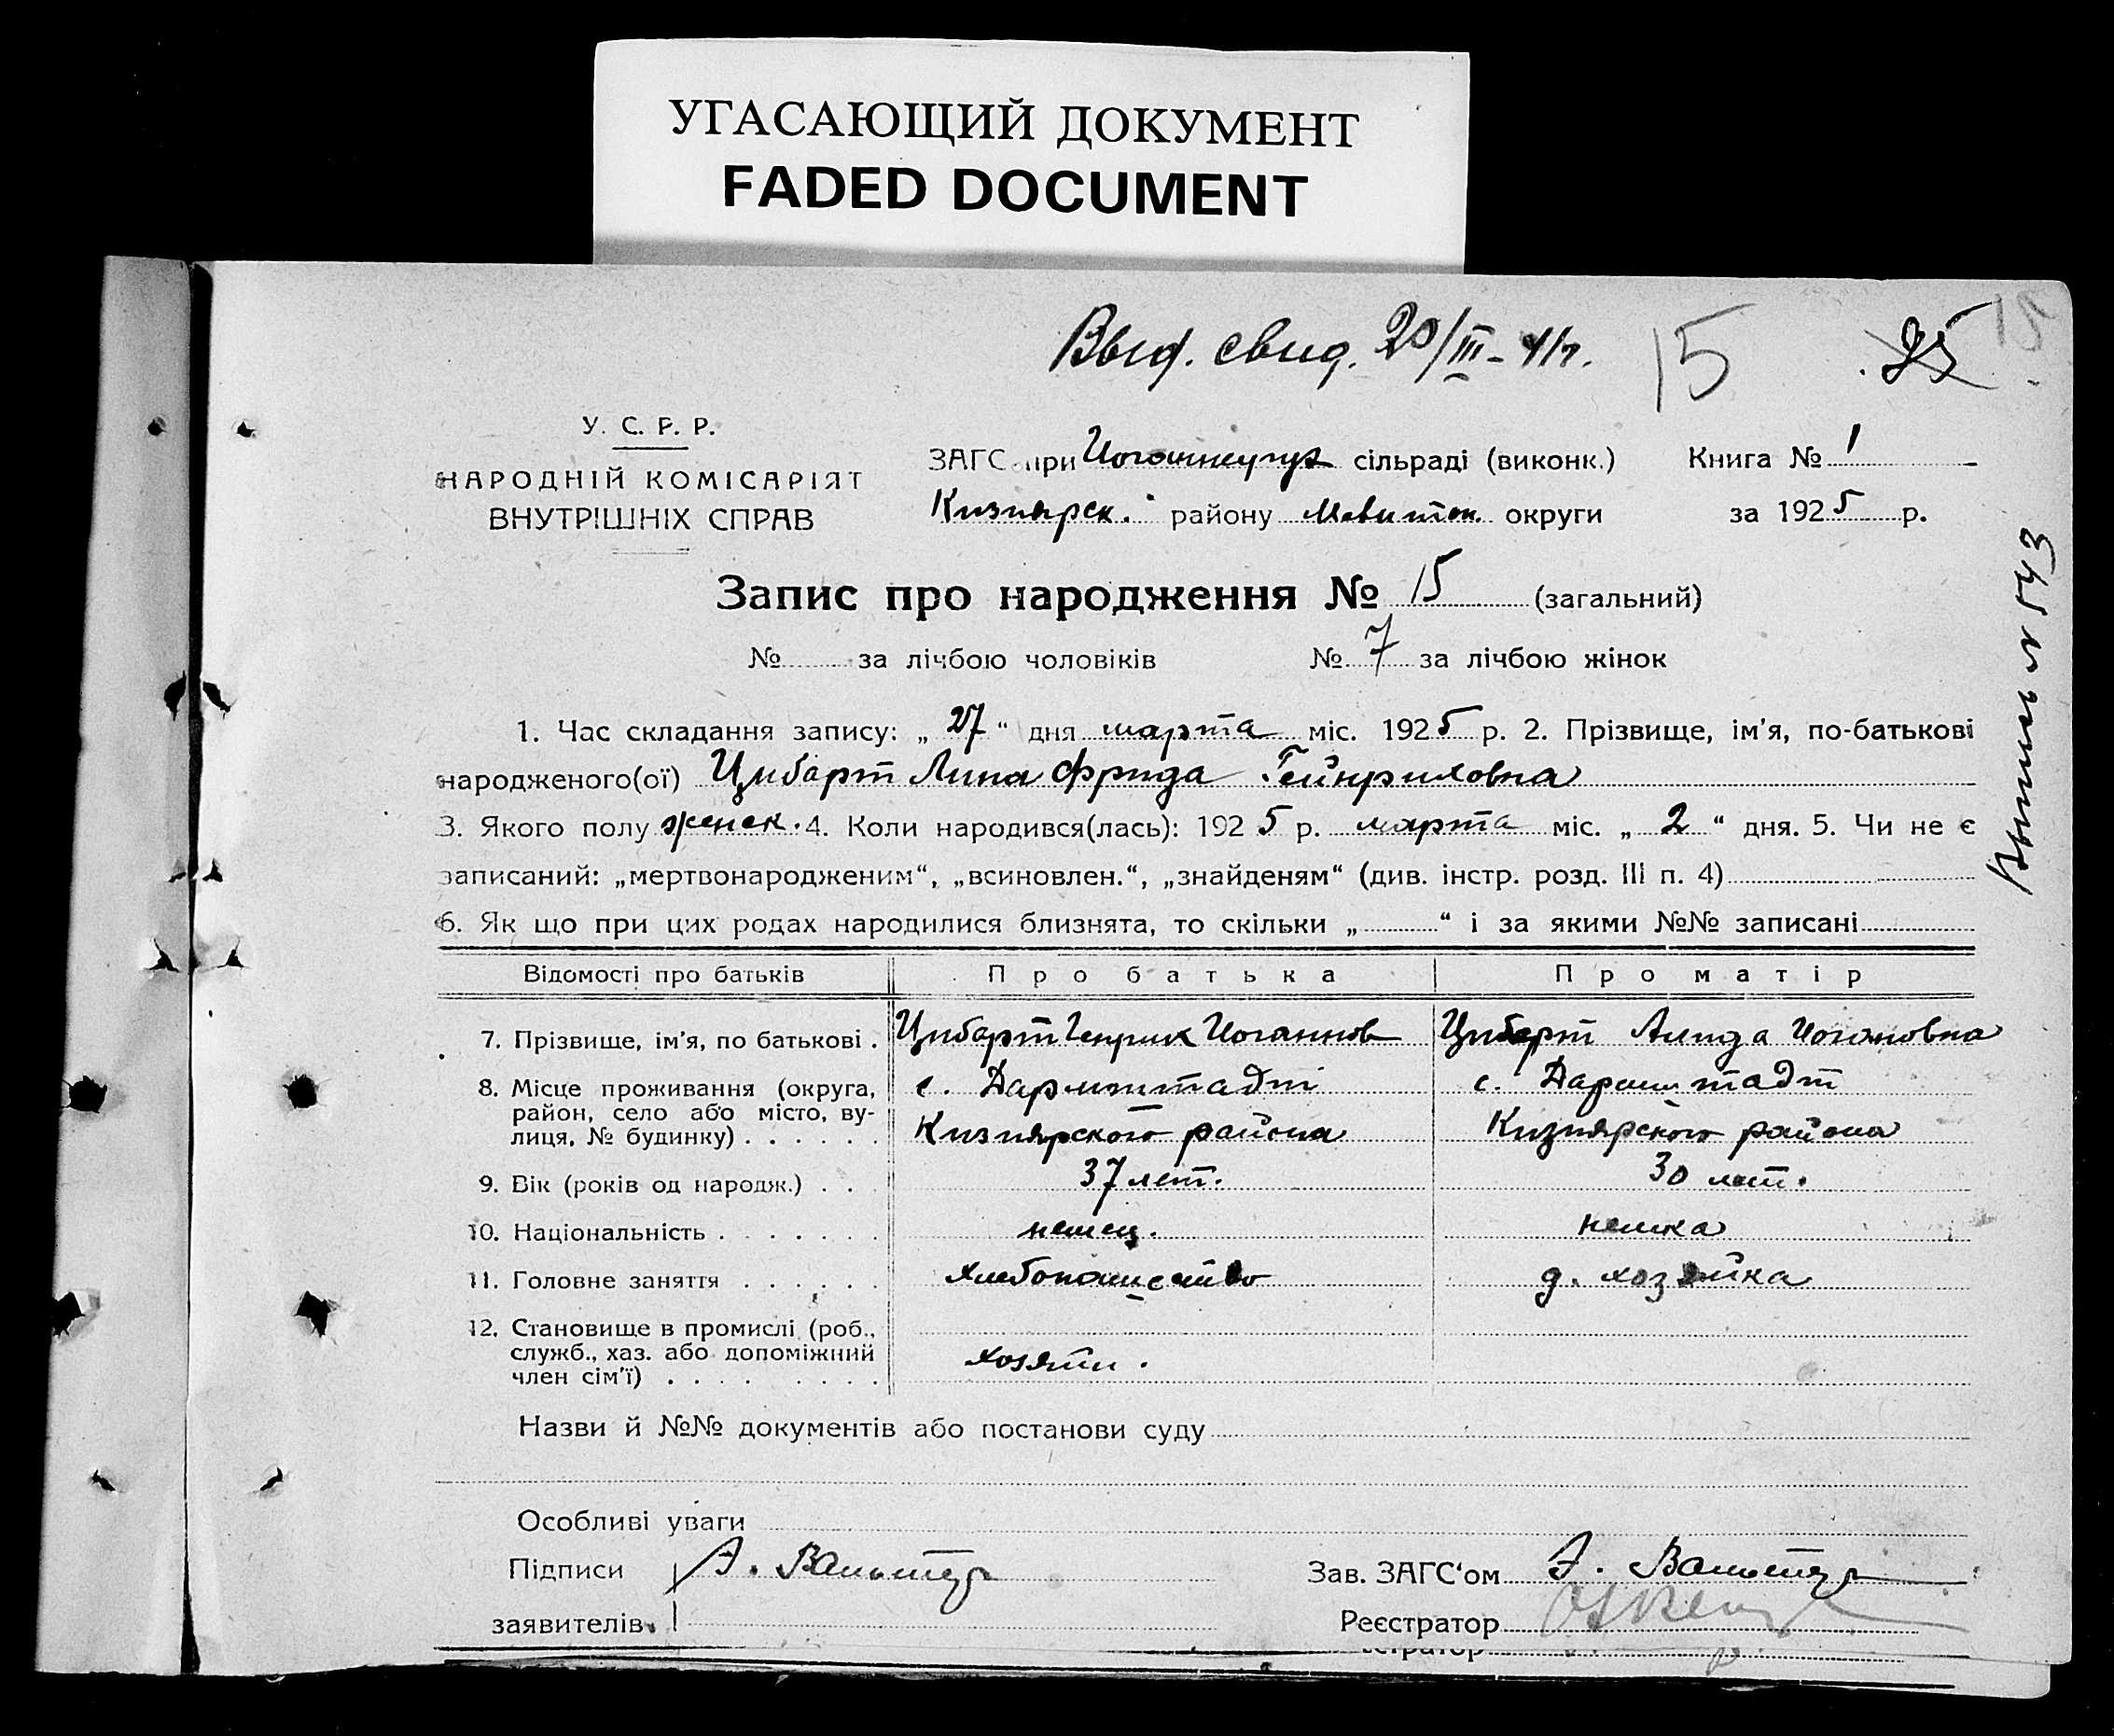 УГАСАЮЩИЙ ДОКУМЕНТ
FADED DOCUMENT
Выд. свид. 20/III-41г.
15
25
15
У. С. Р. Р.
НАРОДНІЙ КОМІСАРІЯТ
ВНУТРІШНІХ СПРАВ
ЗАГС при сільраді (виконк.) Книга № 1
Кизиярск. району Мелитоп. округи за 1925 р.
Запис про народження № 15 (загальний)
№ за лічбою чоловіків № 7 за лічбою жінок
1. Час складання запису: „ 27 “ дня марта міс. 1925 р. 2. Прізвище, ім'я, по-батькові
народженого(ої) Цибарт Лина Фрида Гейнриховна
3. Якого полу женск. 4. Коли народився(лась): 1925 р. марта міс. „ 2 “ дня. 5. Чи не є
записаний: „мертвонародженим“, „всиновлен.“, „знайденям“ (див. інстр. розд. III п. 4)
6. Як що при цих родах народилися близнята, то скільки „ “ і за якими №№ записані
Відомості про батьків Про батька Про матір
7. Прізвище, ім'я, по батькові . Цибарт Генрих Йоганнов Цибарт Алида Йогановна
8. Місце проживання (округа, с. Дармштадт с. Дармштадт
район, село або місто, ву-
лиця, № будинку) . . . . . . Кизиярского района Кизиярского района
9. Вік (років од народж.) . . . 37 лет. 30 лет.
10. Національність . . . . . . . немец. немка
11. Головне заняття . . . . . . хлебопашество д. хозяйка
12. Становище в промислі (роб.,
служб., хаз. або допоміжний хозяин.
член сім'ї) . . . . . . . . .
Назви й №№ документів або постанови суду
Особливі уваги
Підписи А. Зав. ЗАГС'ом А.
заявителів. Реєстратор
естратор
543